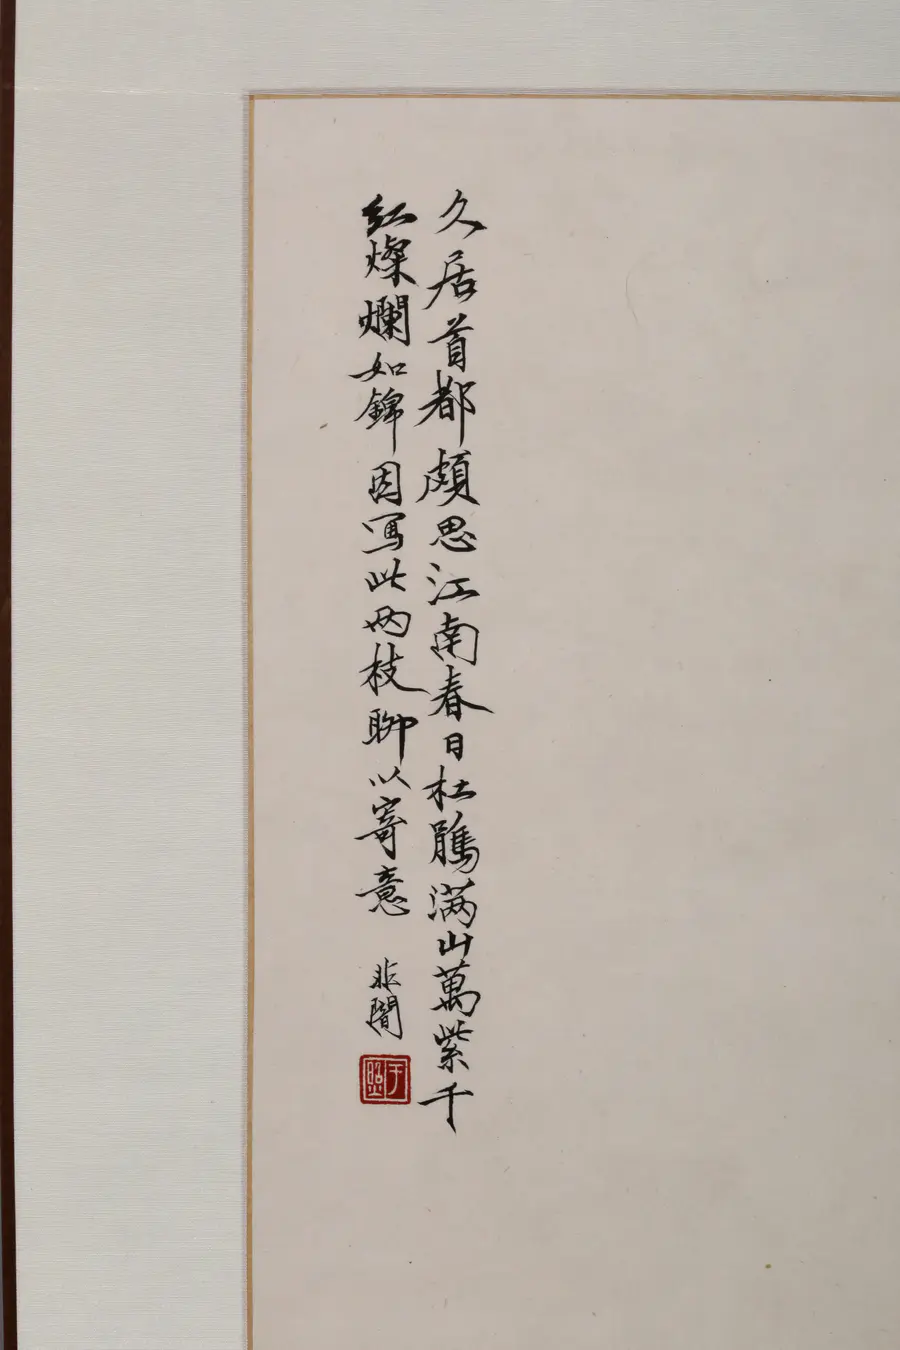 久居首都頗思江南春日杜鵑满山萬紫千
紅燦爛如錦因写此两枝聊以寄意
非闇
于照